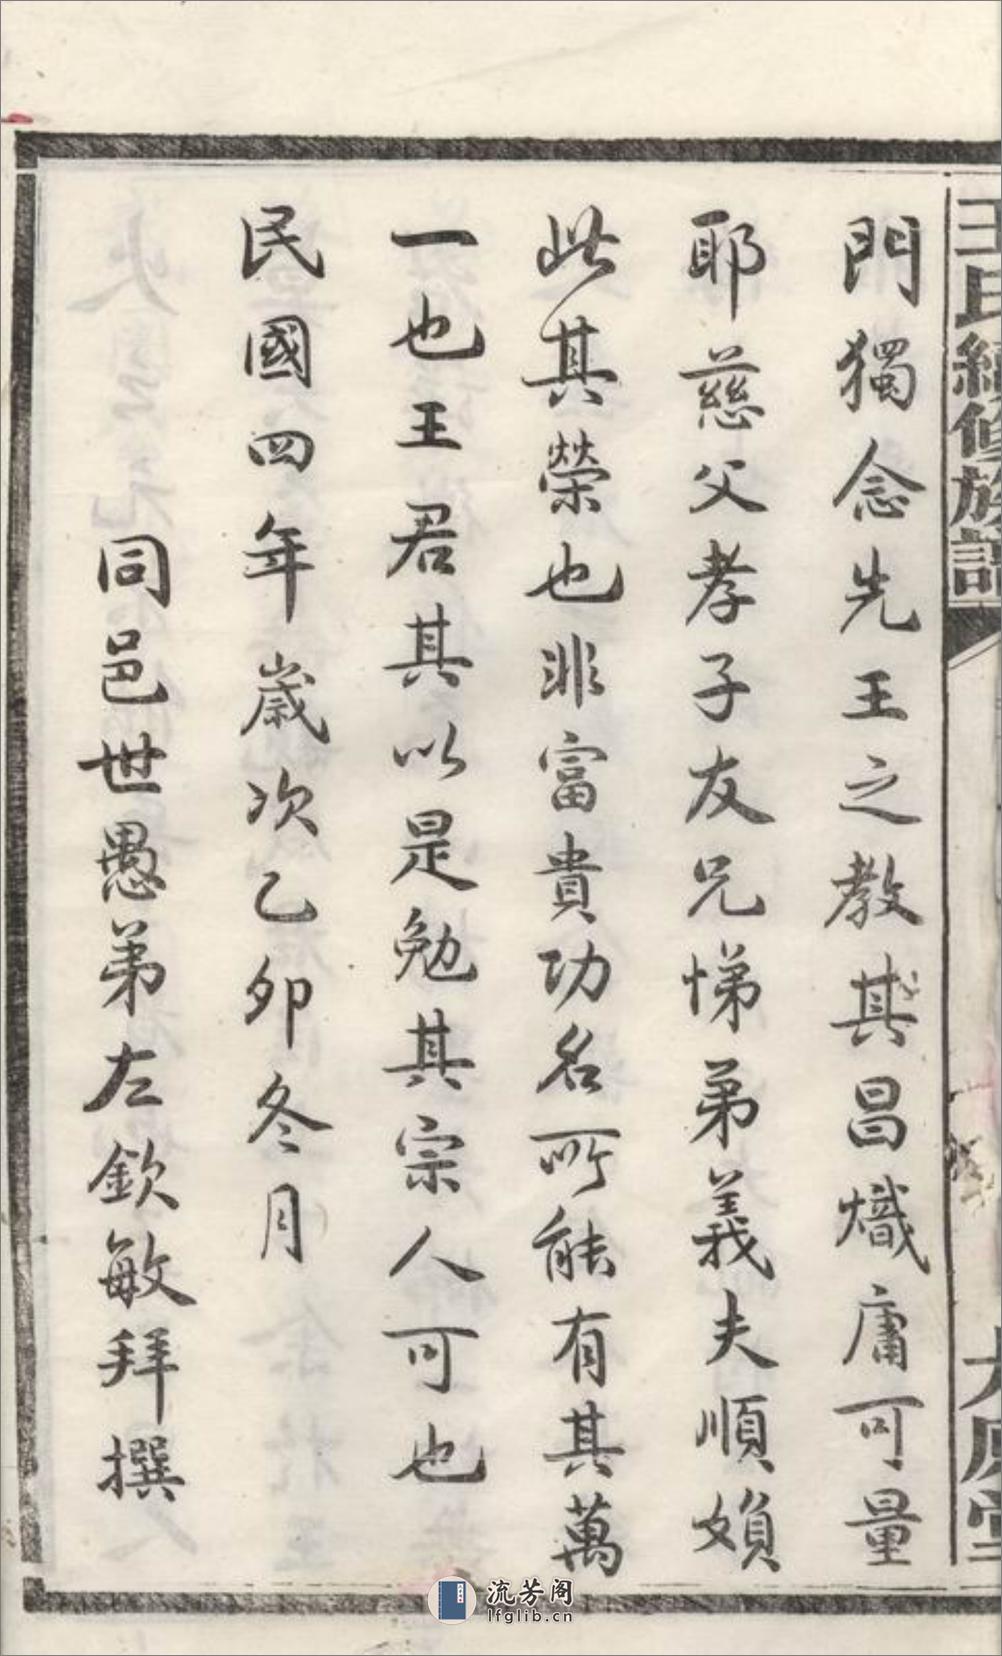 王氏續修族譜
太原堂
門獨念先王之教其昌熾庸可量
耶慈父孝子友兄悌弟義夫順婦
此其榮也非富貴功名所能有其萬
一也王君其以是勉其宗人可也
民國四年歲次乙卯冬月
同邑世愚弟左欽敏拜撰
流芳阁
lfglib.cn